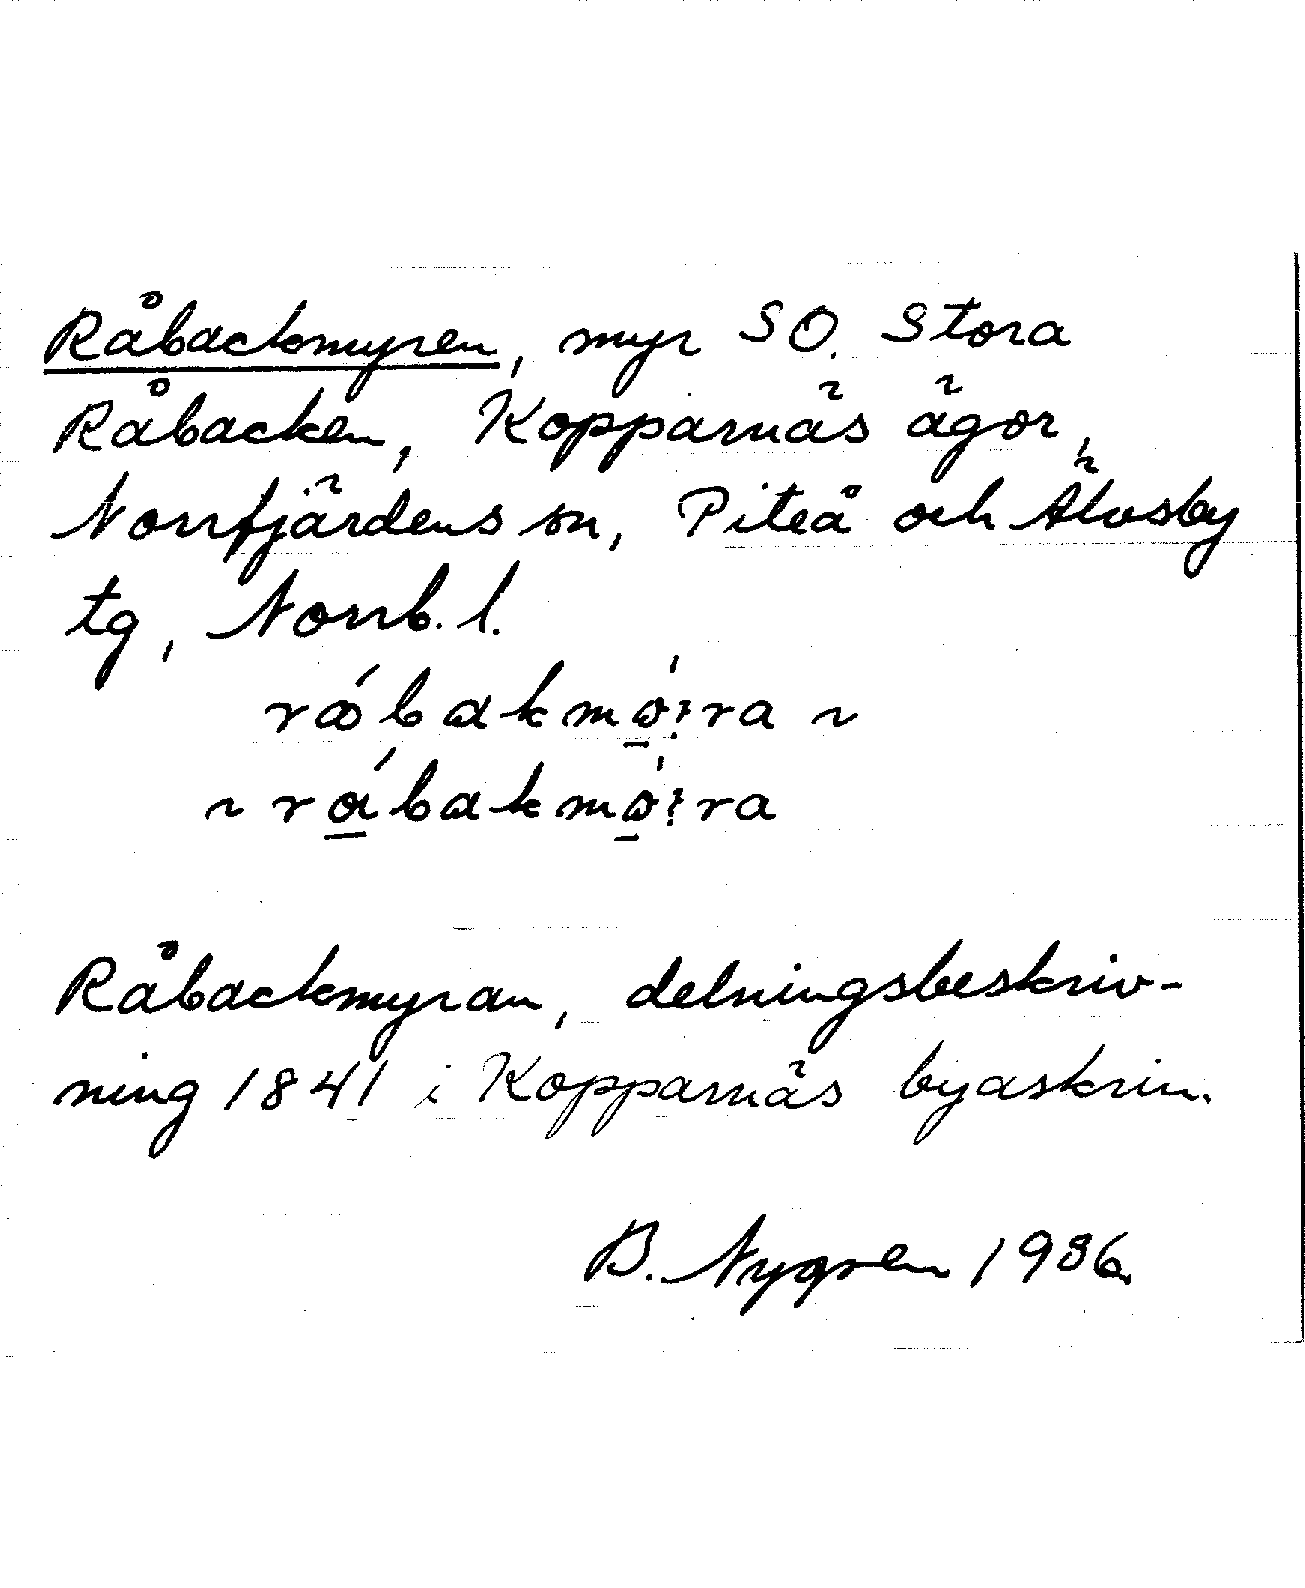 Råbackmyren, myr SO. Stora
Råbacken, Kopparnäs ägor,
Norrfjärdens sn, Piteå och Älvsby
tg, Norrb. l.
Råbackmyran, delningsbeskriv-
ning 1841 i Kopparnäs byaskrin.
B. Nygren 1936.